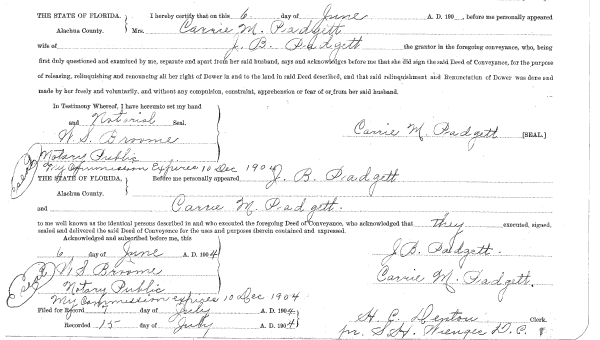 THE STATE OF FLORIDA, I hereby certify that on this 6 day of June A. D. 190 , before me personally appeared
Alachua County. Mrs. Carrie M. Padgett
wife of J. B. Padgett the grantor in the foregoing conveyance, who, being
first duly questioned and examined by me, separate and apart from her said husband, says and acknowledges before me that she did sign the said Deed of Conveyance, for the purpose
of releasing, relinquishing and renouncing all her right of Dower in and to the land in said Deed described, and that said relinquishment and Renunciation of Dower was done and
made by her freely and voluntarily, and without any compulsion, constraint, apprehension or fear of or from her said husband.
In Testimony Whereof, I have hereunto set my hand
and Notarial Seal.
W. S. Broome Carrie M. Padgett [SEAL.]
Seal
Notary Public
My Commission Expires 10 Dec 1904
THE STATE OF FLORIDA, Before me personally appeared J. B. Padgett
Alachua County.
and Carrie M. Padgett.
to me well known as the identical persons described in and who executed the foregoing Deed of Conveyance, who acknowledged that they executed, signed,
sealed and delivered the said Deed of Conveyance for the uses and purposes therein contained and expressed.
Acknowledged and subscribed before me, this
6 day of June A. D. 1904 J. B. Padgett.
Seal
W. S. Broome Carrie M. Padgett.
Notary Public
My Commission expires 10 Dec 1904
Filed for Record 7 day of July A. D. 1904 H. C. Denton Clerk.
Recorded 15 day of July A. D. 1904 pr. S. H. Wienges D. C.